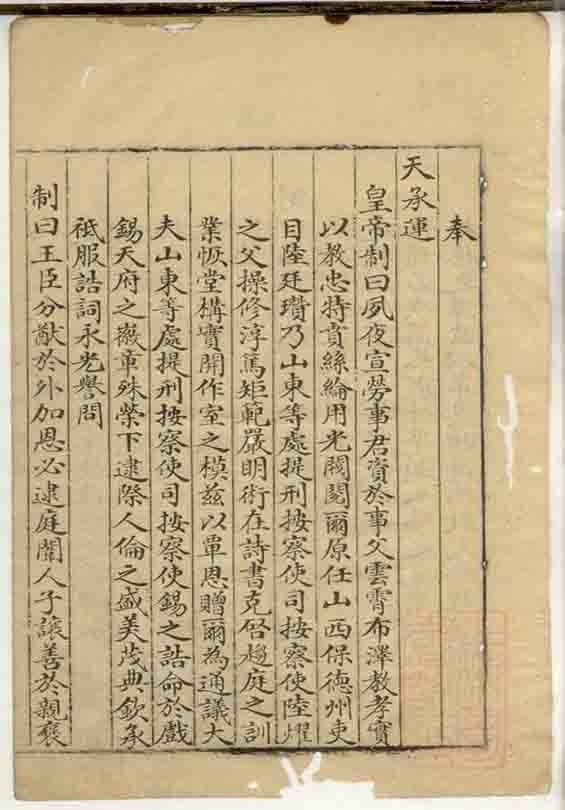 奉
天承運
皇帝制曰夙夜宣勞事君資於事父雲霄布澤教孝實
以教忠特賁絲綸用光閥閱爾原任山西保德州吏
目陸廷瓚乃山東等處提刑按察使司按察使陸燿
之父操修淳篤矩範嚴明術在詩書克啓趨庭之訓
業恢堂構實開作室之模兹以覃恩贈爾為通議大
夫山東等處提刑按察使司按察使錫之誥命於戲
錫天府之徽章殊榮下逮際人倫之盛美茂典欽承
祗服誥詞永光譽問
制曰王臣分猷於外加恩必逮庭闈人子讓善於親褒